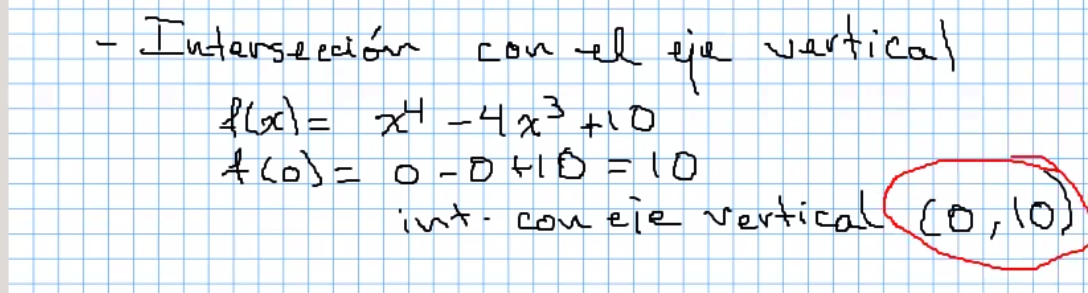 - Intersección con el eje vertical
f(x) = x⁴ - 4x³ + 10
f(0) = 0 - 0 + 10 = 10
int. con eje vertical (0, 10)